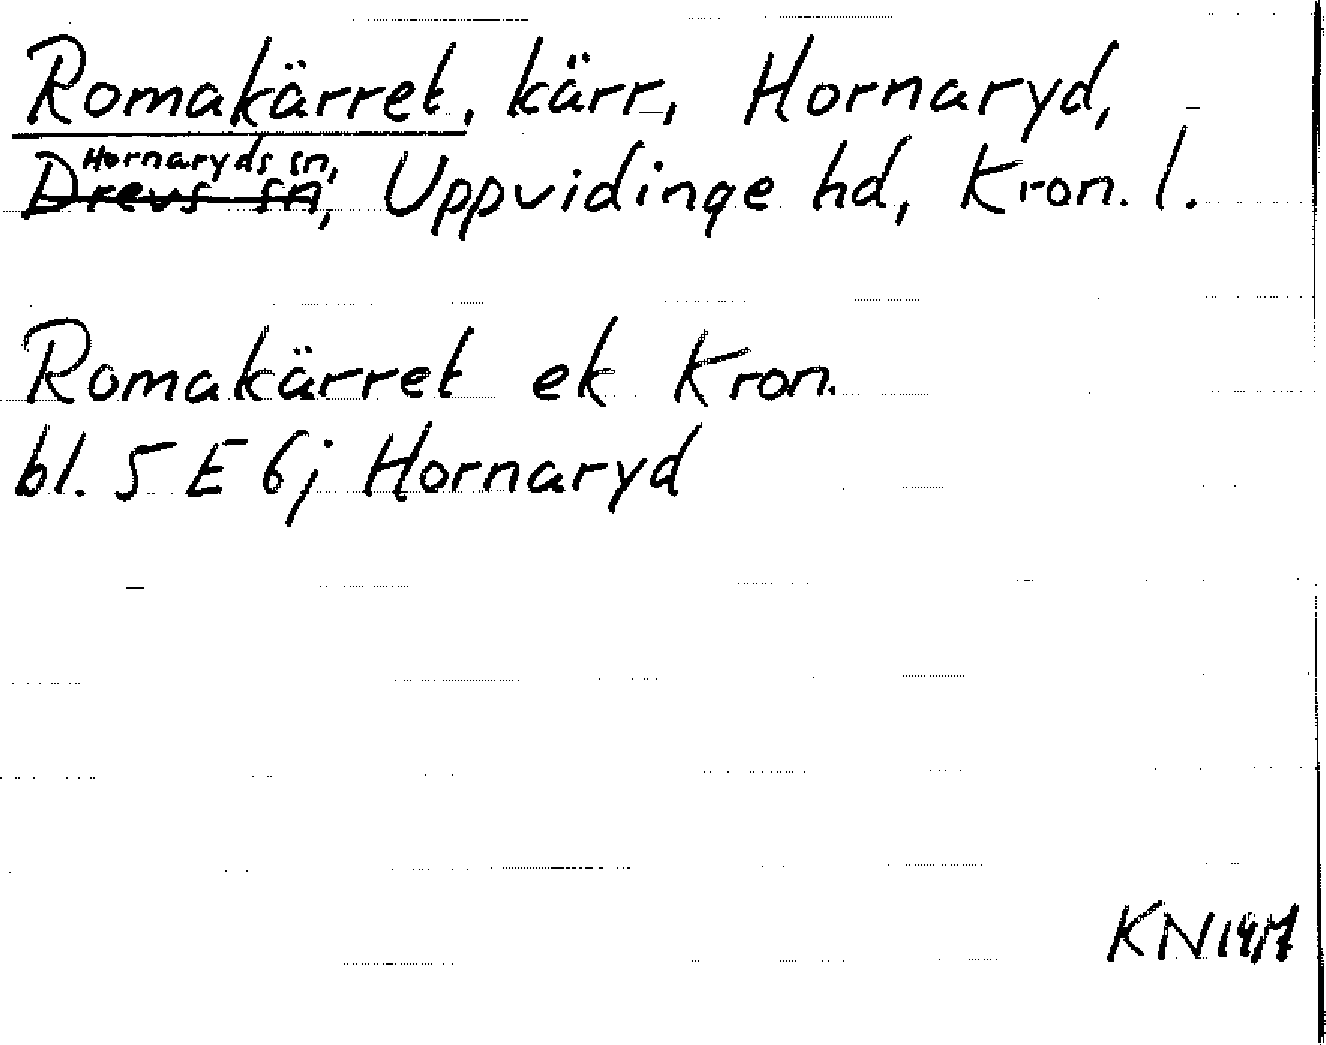 Romakärret, kärr, Hornaryd,
Hornaryds sn,
Drevs sn, Uppvidinge hd, Kron. l.
Romakärret ek Kron.
bl. 5 E 6j Hornaryd
KN